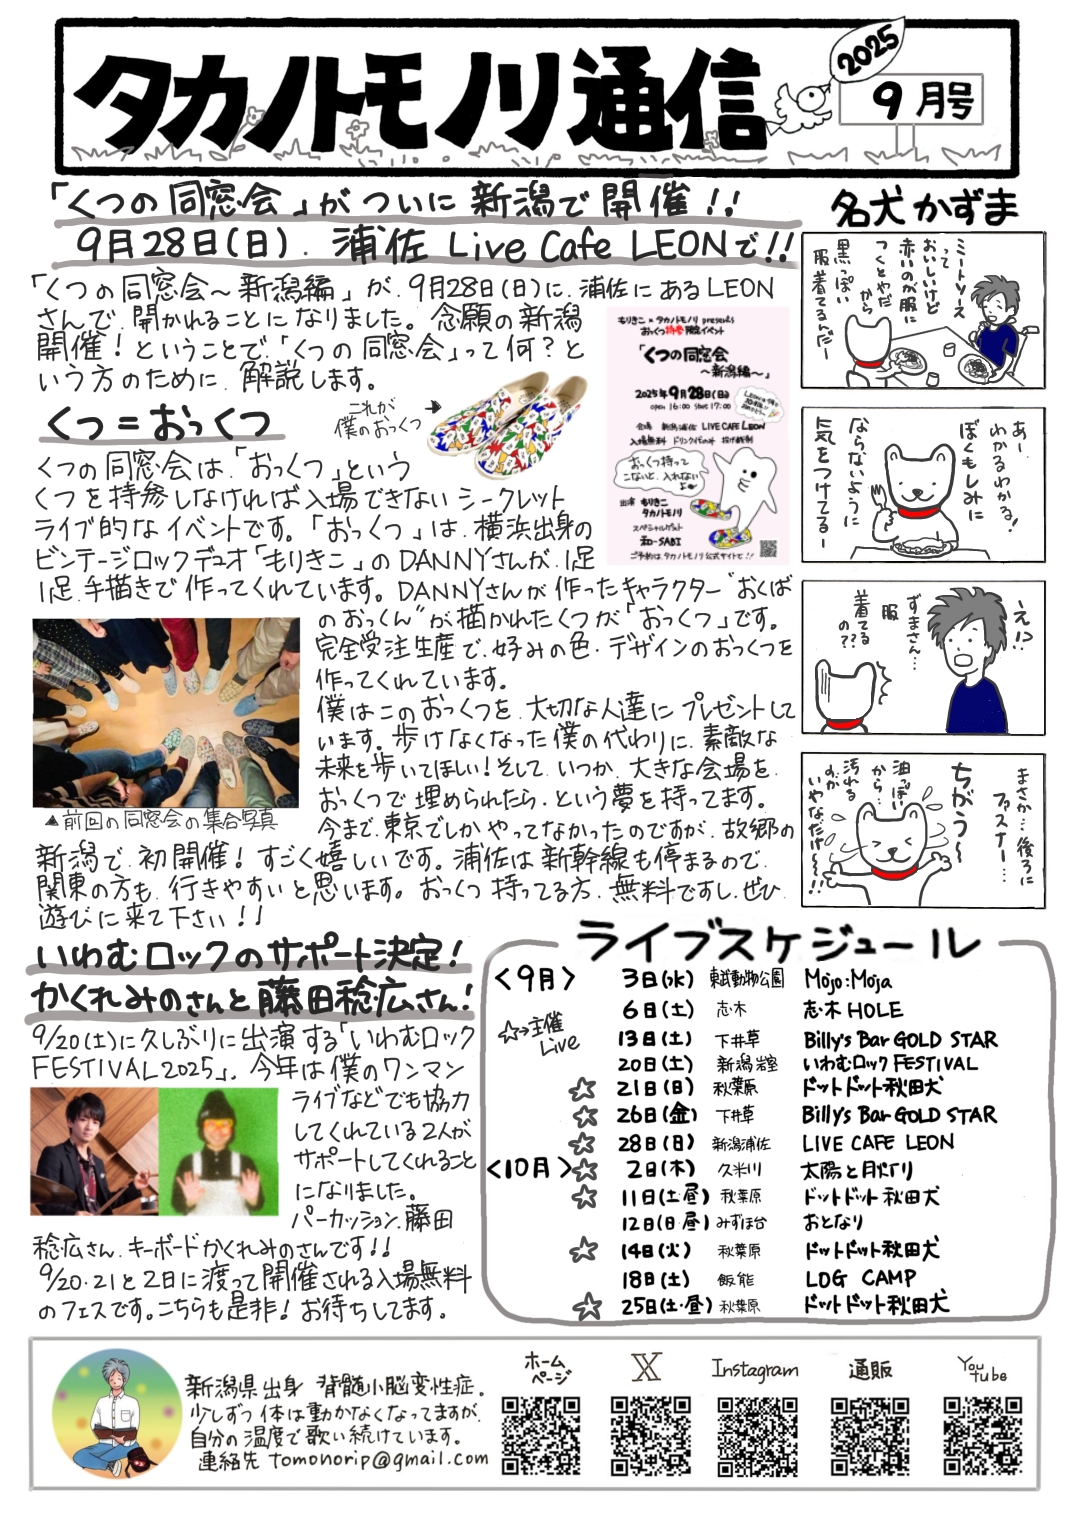 タカノトモノリ通信
2025
9月号
「くつの同窓会」がついに新潟で開催!!
9月28日(日).浦佐 Live Cafe LEONで!!
「くつの同窓会〜新潟編」が、9月28日(日)に、浦佐にあるLEON
さんで、開かれることになりました。念願の新潟
開催!ということで、「くつの同窓会」って何?と
いう方のために、解説します。
くつ=おっくつ
これが
僕のおっくつ
くつの同窓会は「おっくつ」という
くつを持参しなければ入場できないシークレット
ライブ的なイベントです。「おっくつ」は、横浜出身の
ビンテージロックデュオ「もりきこ」のDANNYさんが、1足
1足、手描きで作ってくれています。DANNYさんが作ったキャラクター"おくば
のおっくん"が描かれたくつが「おっくつ」です。
完全受注生産で、好みの色・デザインのおっくつを
作ってくれています。
僕はこのおっくつを、大切な人達にプレゼントして
います。歩けなくなった僕の代わりに、素敵な
未来を歩いてほしい!そして、いつか、大きな会場を、
おっくつで埋められたら、という夢を持ってます。
今まで、東京でしかやってなかったのですが、故郷の
新潟で、初開催!すごく嬉しいです。浦佐は新幹線も停まるので、
関東の方も、行きやすいと思います。おっくつ持ってる方、無料ですし、ぜひ
遊びに来て下さい!!
▲前回の同窓会の集合写真
もりきこ×タカノトモノリ presents
おっくつ持参限定イベント
「くつの同窓会
〜新潟編〜」
2025年9月28日(日)
open 16:00 start 17:00
会場 新潟浦佐 LIVE CAFE LEON
入場無料 ドリンク代のみ 投げ銭制
おっくつ持って
こないと、入れない
よ
出演 もりきこ
タカノトモノリ
スペシャルゲスト
和-SABI
ご予約はタカノトモノリ公式サイトで!!
名犬かずま
ミートソース
って
おいしいけど
赤いのが服に
つくとやだ
から
黒っぽい
服着てるんだー
あー、
わかるわかる!
ぼくもしみに
ならないように
気をつけてるー
え!?
ずまさん…
服
着てる
の??
まさか…後ろに
ファスナー…
ちがう〜
油っぽい
から…
汚れる
のが
いやなだけ〜!!
いわむロックのサポート決定!
かくれみのさんと藤田稔広さん!
9/20(土)に久しぶりに出演する「いわむロック
FESTIVAL2025」。今年は僕のワンマン
ライブなどでも協力
してくれている2人が
サポートしてくれること
になりました。
パーカッション、藤田
稔広さん、キーボードかくれみのさんです!!
9/20・21と2日に渡って開催される入場無料
のフェスです。こちらも是非!お待ちしてます。
ライブスケジュール
<9月>
☆→主催
Live
3日(水) 東武動物公園 Mojo:Moja
6日(土) 志木 志木HOLE
13日(土) 下井草 Billy's Bar GOLD STAR
20日(土) 新潟岩室 いわむロックFESTIVAL
☆ 21日(日) 秋葉原 ドットドット秋田犬
☆ 26日(金) 下井草 Billy's Bar GOLD STAR
☆ 28日(日) 新潟浦佐 LIVE CAFE LEON
<10月>☆ 2日(木) 久米川 太陽と月灯り
☆ 11日(土・昼) 秋葉原 ドットドット秋田犬
12日(日・昼) みずほ台 おとなり
☆ 14日(火) 秋葉原 ドットドット秋田犬
18日(土) 飯能 LOG CAMP
☆ 25日(土・昼) 秋葉原 ドットドット秋田犬
新潟県出身 脊髄小脳変性症。
少しずつ体は動かなくなってますが、
自分の温度で歌い続けています。
連絡先 tomonorip@gmail.com
ホーム
ページ
X
Instagram
通販
You
tube